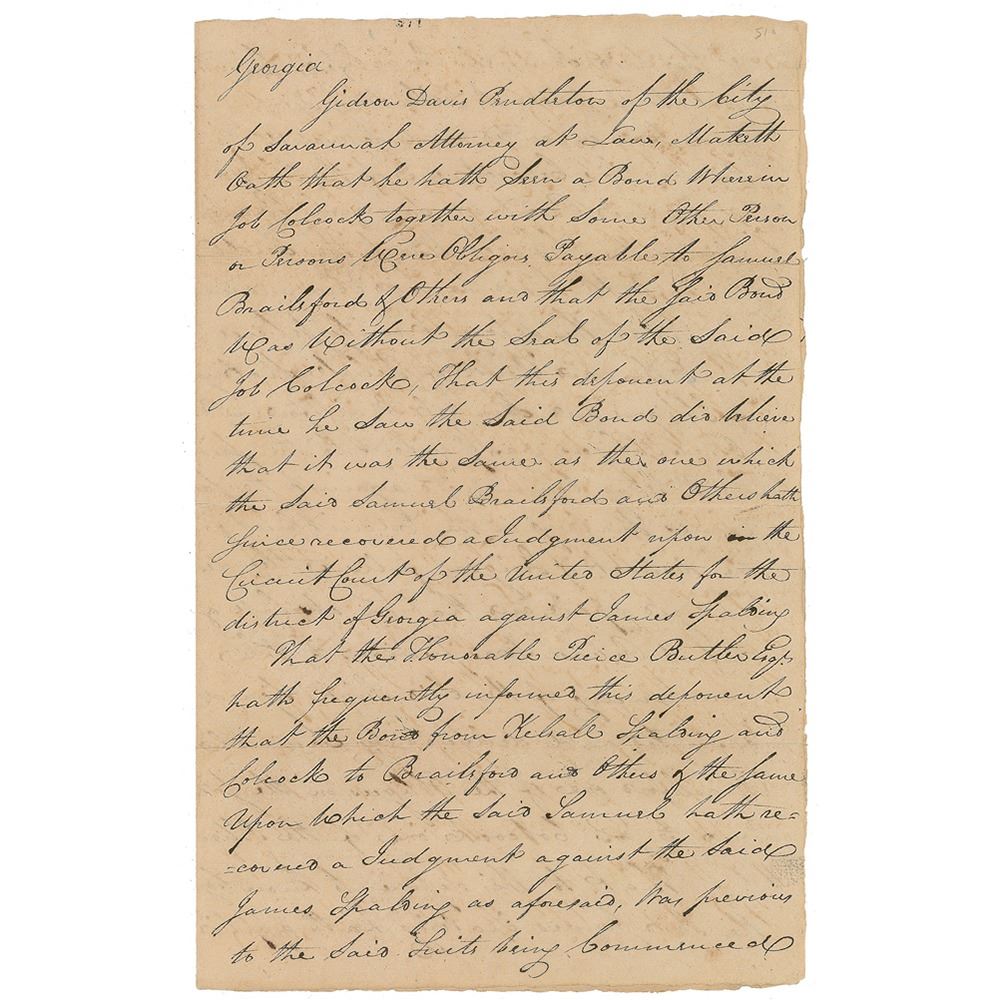 Georgia
Gideon Davis Pendleton of the City
of Savannah Attorney at Law, Maketh
Oath that he hath Seen a Bond Wherein
Job Colcock together with Some Other Person
or Persons Were Obligors Payable to Samuel
Brailsford & Others and that the Said Bond
Was Without the Seal of the Said
Job Colcock, That this deponent at the
time he Saw the Said Bond did believe
that it was the Same as the one which
the Said Samuel Brailsford and Others hath
Since recovered a Judgment upon in the
Circuit Court of the United States for the
district of Georgia against James Spalding
That the Honorable Pierce Butler Esqr.
hath frequently informed this deponent
that the Bond from Kelsall Spalding and
Colcock to Brailsford and Others & the Same
Upon Which the Said Samuel hath re=
=covered a Judgment against the Said
James Spalding as aforesaid, Was previous
to the Said Suits being Commenced